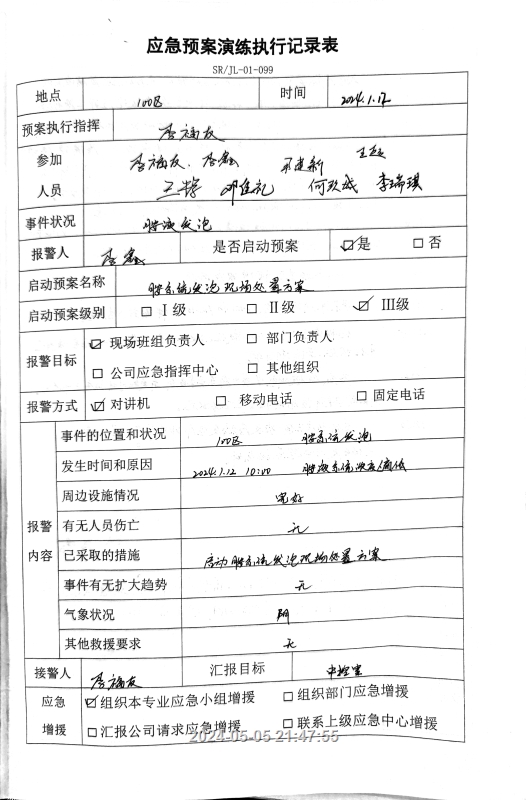 应急预案演练执行记录表
SR/JL-01-099
地点 100区 时间 2024.1.12
预案执行指挥 李福友
参加人员 李福友、李鑫 王建新 王超
王辉 邓佳礼 何玖成 李瑞琪
事件状况 胺液发泡
报警人 李鑫 是否启动预案 ☑是 □否
启动预案名称 胺系统发泡现场处置方案
启动预案级别 □ Ⅰ级 □ Ⅱ级 ☑ Ⅲ级
报警目标 ☑ 现场班组负责人 □ 部门负责人
□ 公司应急指挥中心 □ 其他组织
报警方式 ☑ 对讲机 □ 移动电话 □ 固定电话
报警内容
事件的位置和状况 100区 胺系统发泡
发生时间和原因 2024.1.12 10:00 胺液系统
周边设施情况 完好
有无人员伤亡 无
已采取的措施 启动胺系统发泡现场处置方案
事件有无扩大趋势 无
气象状况 阴
其他救援要求 无
接警人 李福友 汇报目标 中控室
应急增援 ☑组织本专业应急小组增援 □组织部门应急增援
□汇报公司请求应急增援 □联系上级应急中心增援
2024-05-05 21:47:55